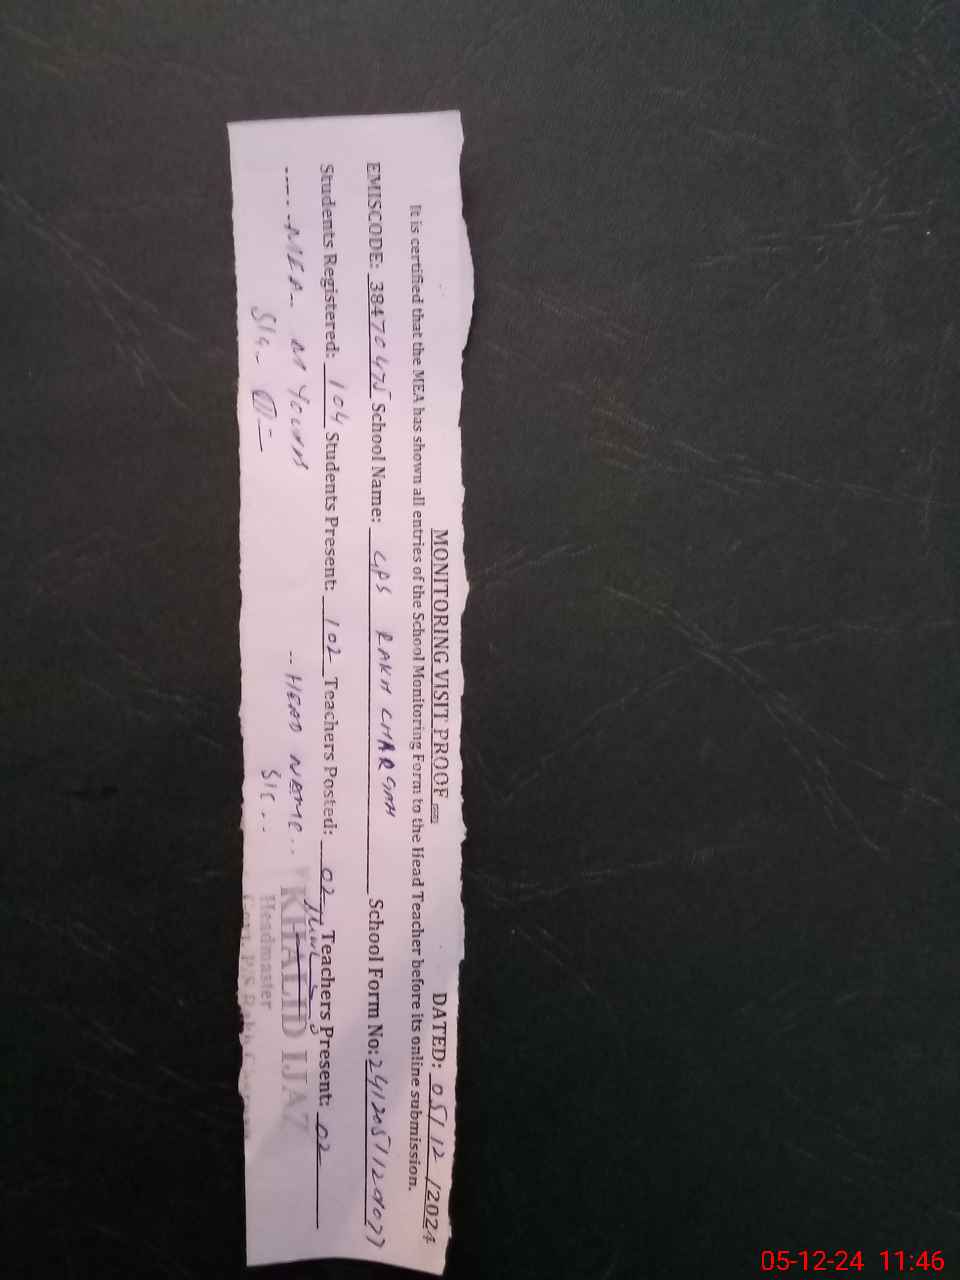 MONITORING VISIT PROOF DATED: 05/12/2024
It is certified that the MEA has shown all entries of the School Monitoring Form to the Head Teacher before its online submission.
EMISCODE: 38470475 School Name: GPS RAKH CHARGAH School Form No:
Students Registered: 104 Students Present: 102 Teachers Posted: 02 Teachers Present: 02
MEA- M YOUNAS -- HEAD NAME.. KHALID IJAZ
SIG- SIG.. Headmaster
05-12-24 11:46